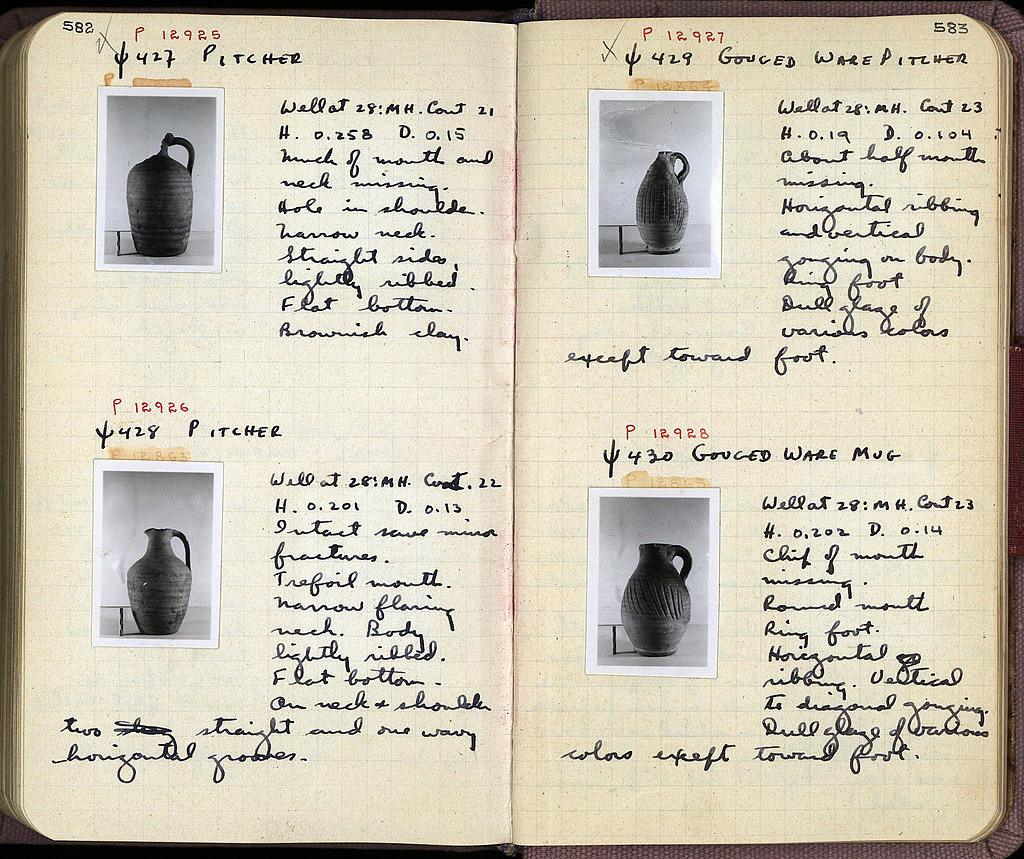 582
P 12925
ψ 427 PITCHER
Well at 28:MH. Cont 21
H. 0.258 D. 0.15
Much of mouth and
neck missing.
Hole in shoulder.
Narrow neck.
Straight sides,
lightly ribbed.
Flat bottom.
Brownish clay.
P 12926
ψ 428 PITCHER
P 12863
Well at 28:MH. Cont. 22
H. 0.201 D. 0.13
Intact save minor
fractures.
Trefoil mouth.
Narrow flaring
neck. Body
lightly ribbed.
Flat bottom.
On neck + shoulder
two straight and one wavy
horizontal grooves.
583
P 12927
ψ 429 GOUGED WARE PITCHER
P 12864
Well at 28:MH. Cont 23
H. 0.19 D. 0.104
About half mouth
missing.
Horizontal ribbing
and vertical
gouging on body.
Ring foot
Dull glaze of
various colors
except toward foot.
P 12928
ψ 430 GOUGED WARE MUG
P 12865
Well at 28:MH. Cont 23
H. 0.202 D. 0.14
Chip of mouth
missing.
Round mouth
Ring foot.
Horizontal
ribbing. Vertical
to diagonal gouging.
Dull glaze of various
colors except toward foot.